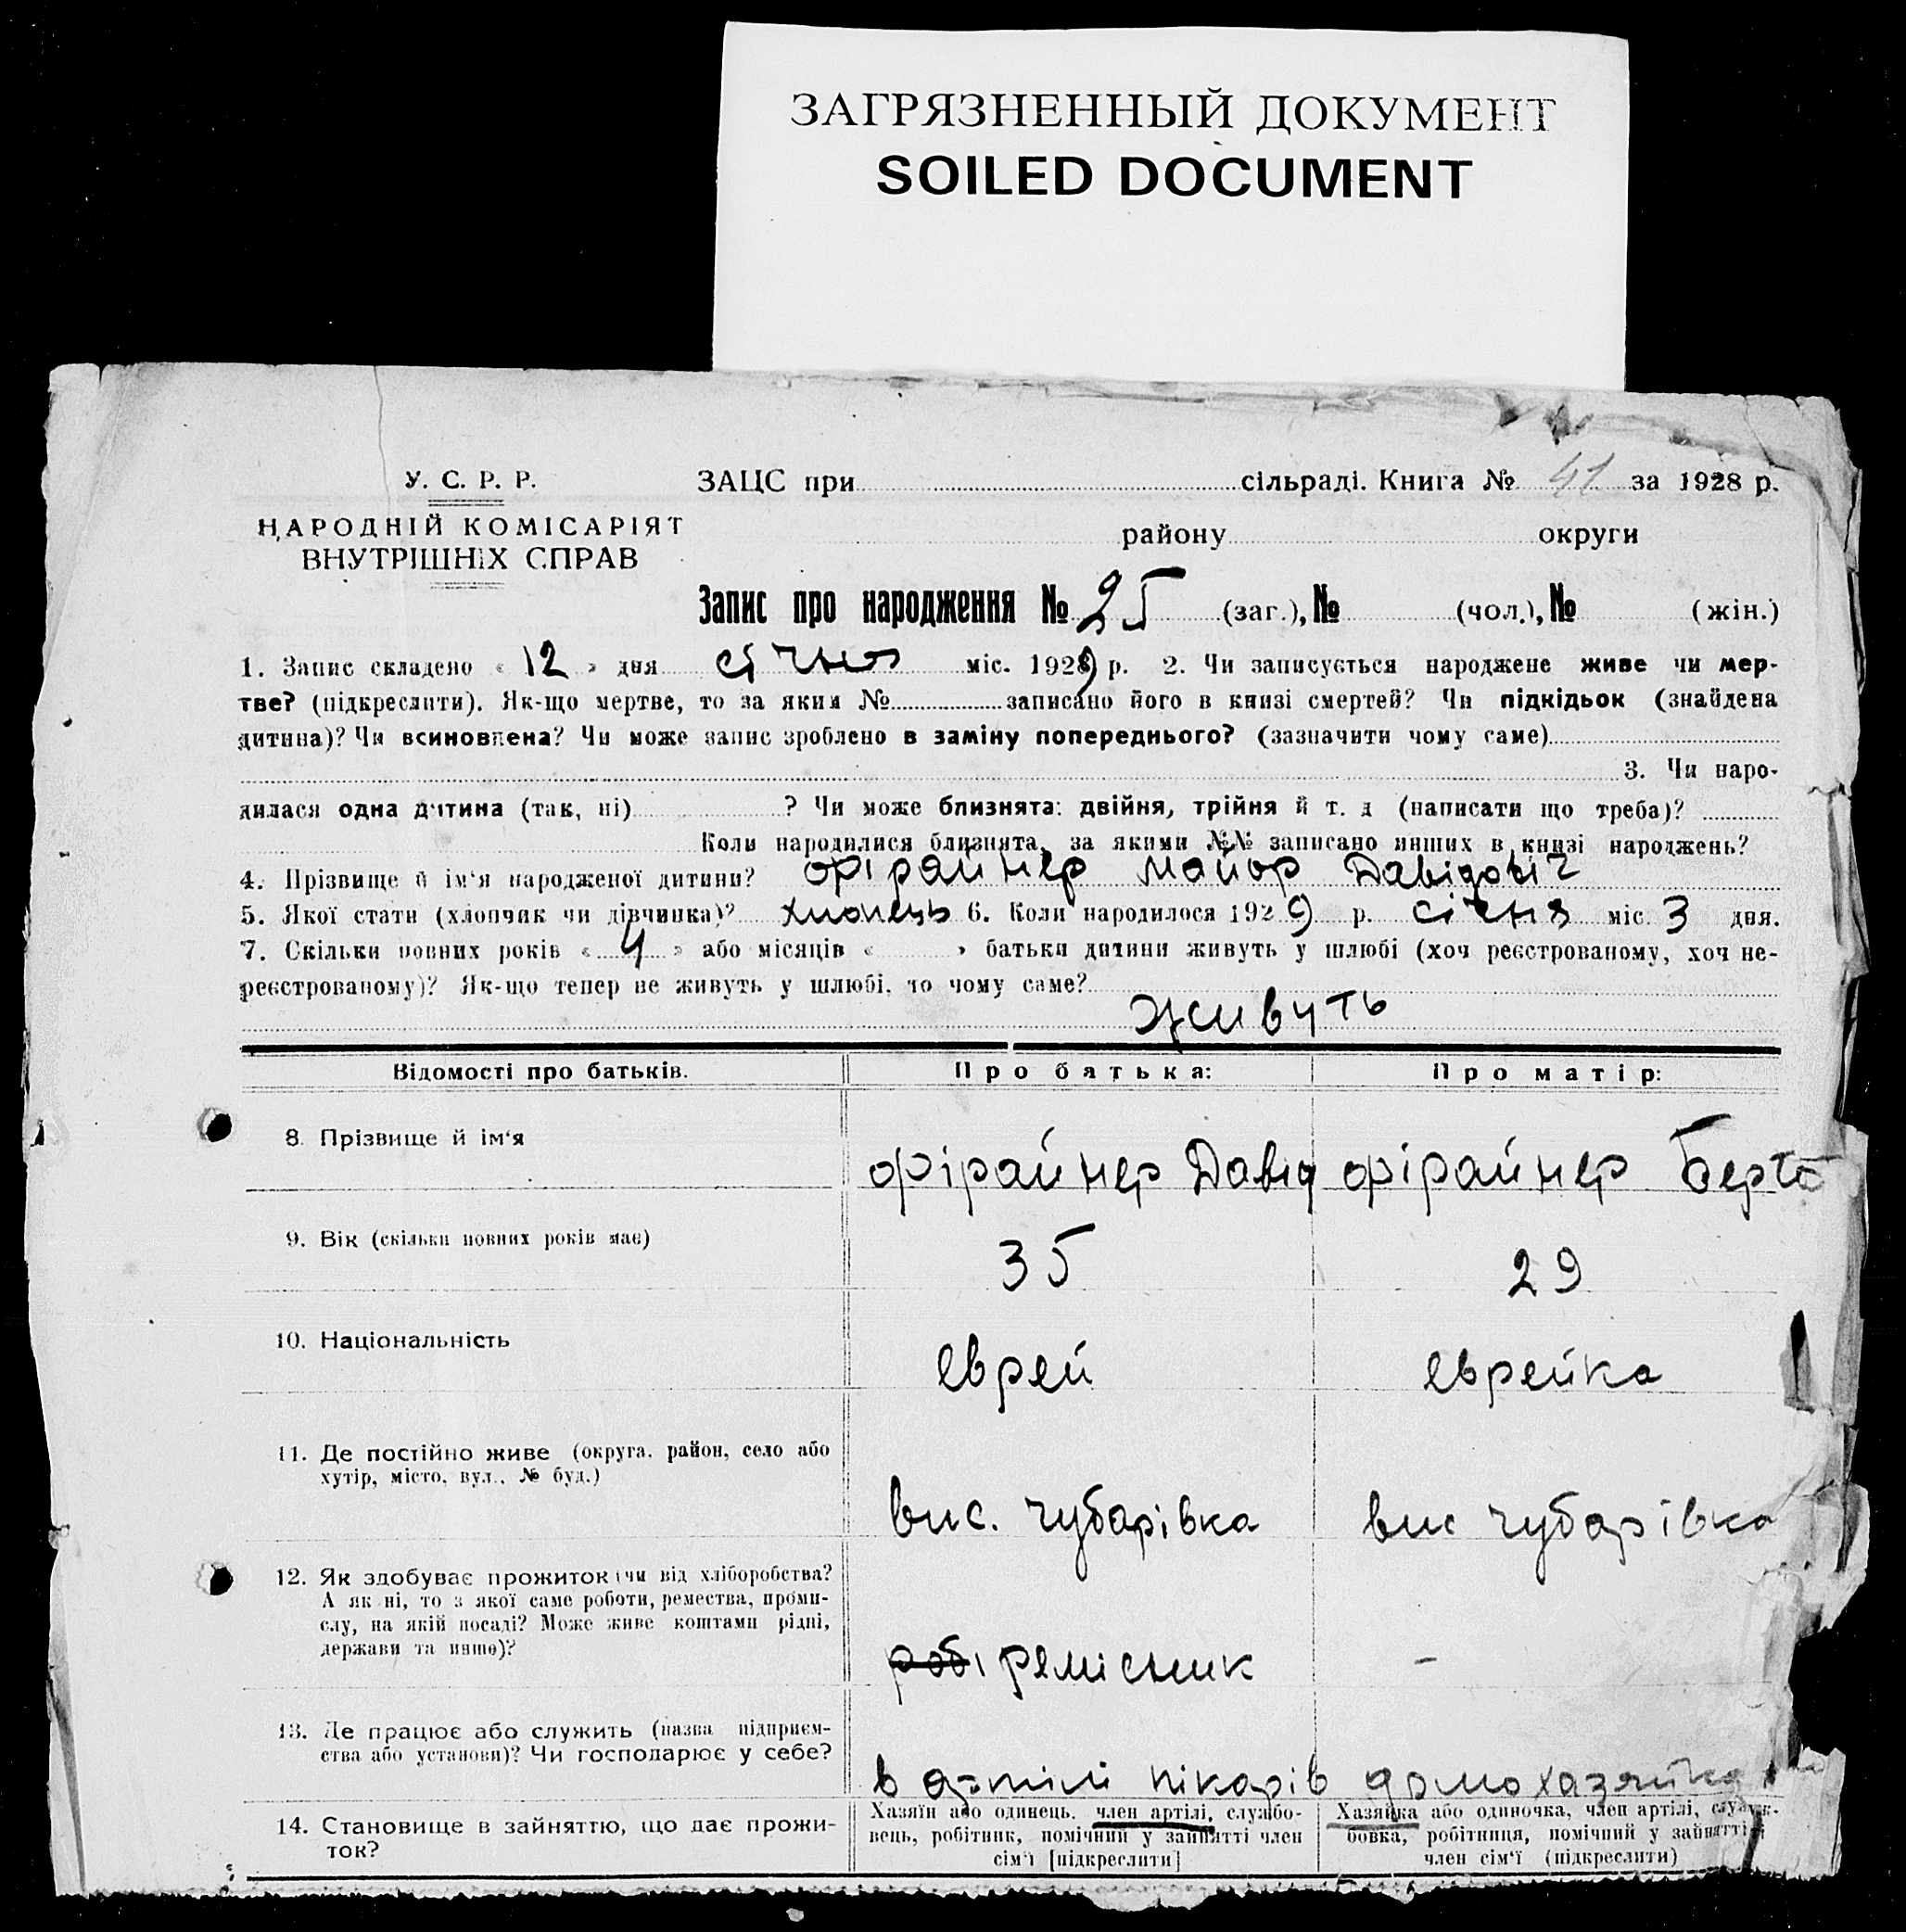 ЗАГРЯЗНЕННЫЙ ДОКУМЕНТ
SOILED DOCUMENT
У. С. Р. Р.
НАРОДНІЙ КОМІСАРІЯТ
ВНУТРІШНІХ СПРАВ
ЗАЦС при сільраді. Книга № 41 за 1928 р.
району округи
Запис про народження № 25 (заг.), № (чол.), № (жін.)
1. Запис складено « 12 » дня січня міс. 1929 р. 2. Чи записується народжене живе чи мер-
тве? (підкреслити). Як-що мертве, то за яким № записано його в книзі смертей? Чи підкідьок (знайдена
дитина)? Чи всиновлена? Чи може запис зроблено в заміну попереднього? (зазначити чому саме)
3. Чи наро-
дилася одна дитина (так, ні) ? Чи може близнята: двійня, трійня й т. д (написати що треба)?
Коли народилися близнята, за якими №№ записано инших в книзі народжень?
4. Прізвище й ім‘я народженої дитини? Фірайнер Майор Давідовіч
5. Якої стати (хлопчик чи дівчинка)? хлопець 6. Коли народилося 1929 р. січня міс 3 дня.
7. Скільки повних років « 4 » або місяців « » батьки дитини живуть у шлюбі (хоч реєстрованому, хоч не-
реєстрованому)? Як-що тепер не живуть у шлюбі, то чому саме?
живуть
Відомості про батьків. Про батька: Про матір:
8. Прізвище й ім‘я
Фірайнер Давід Фірайнер Берта
9. Вік (скільки повних років має)
35 29
10. Національність
еврей еврейка
11. Де постійно живе (округа. район, село або
хутір, місто, вул., № буд.)
вис. Чубарівка вис Чубарівка
12. Як здобуває прожиток (чи від хліборобства?
А як ні, то з якої саме роботи, ремества, проми-
слу, на якій посаді? Може живе коштами рідні,
держави та инше)?
робі ремісник -
13. Де працює або служить (назва підприєм-
ства або установи)? Чи господарює у себе?
в артілі пікарів домохазяйка
14. Становище в зайняттю, що дає прожи-
ток?
Хазяїн або одинець, член артілі, службо-
вець, робітник, помічний у зайнятті член
сім‘ї [підкреслити]
Хазяйка або одиночка, член артілі, служ-
бовка, робітниця, помічний у зайнятті
член сім‘ї (підкреслити)